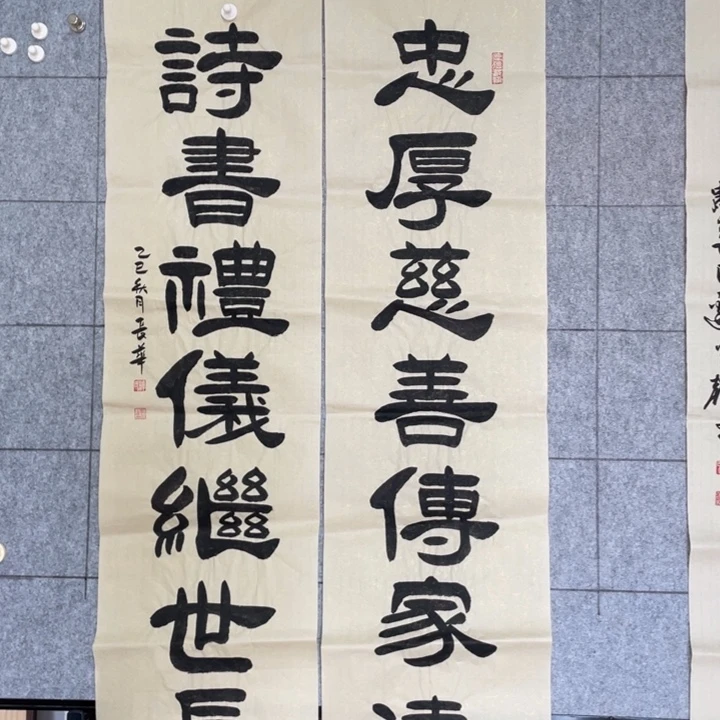 忠厚慈善傳家遠
詩書禮儀繼世長
乙巳秋月長華